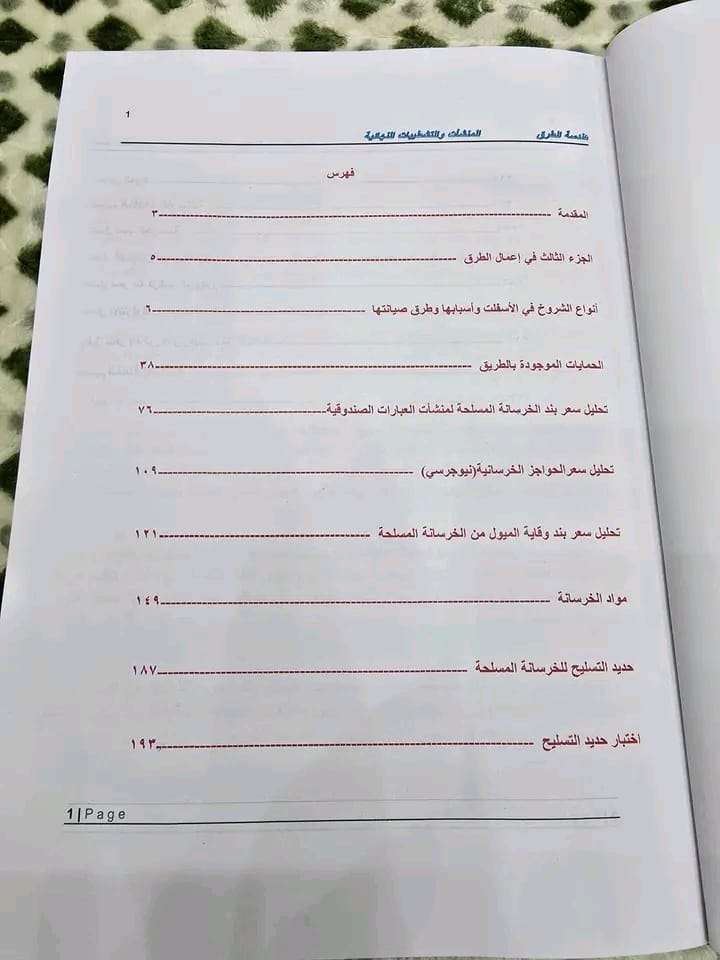 1
هندسة الطرق المنشأت والتشطيبات النهائية
فهرس
المقدمة ---------- ٣
الجزء الثالث في إعمال الطرق ---------- ٥
أنواع الشروخ في الأسفلت وأسبابها وطرق صيانتها ---------- ٦
الحمايات الموجودة بالطريق ---------- ٣٨
تحليل سعر بند الخرسانة المسلحة لمنشأت العبارات الصندوقية ---------- ٧٦
تحليل سعرالحواجز الخرسانية(نيوجرسي) ---------- ١٠٩
تحليل سعر بند وقاية الميول من الخرسانة المسلحة ---------- ١٢١
مواد الخرسانة ---------- ١٤٩
حديد التسليح للخرسانة المسلحة ---------- ١٨٧
اختبار حديد التسليح ---------- ١٩٣
1 | Page